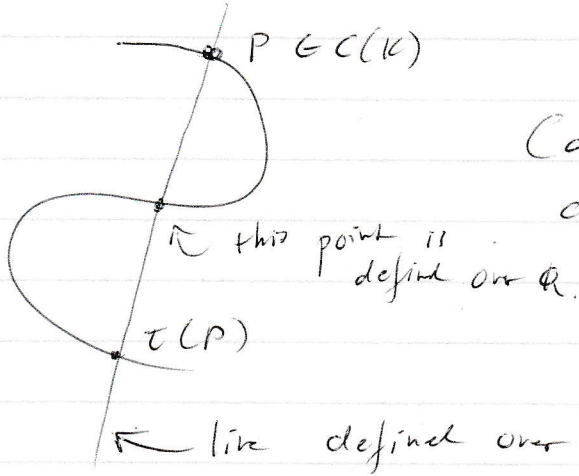 P ∈ C(K)
(Ca
this point is
defind over Q.
τ(P)
line defined over